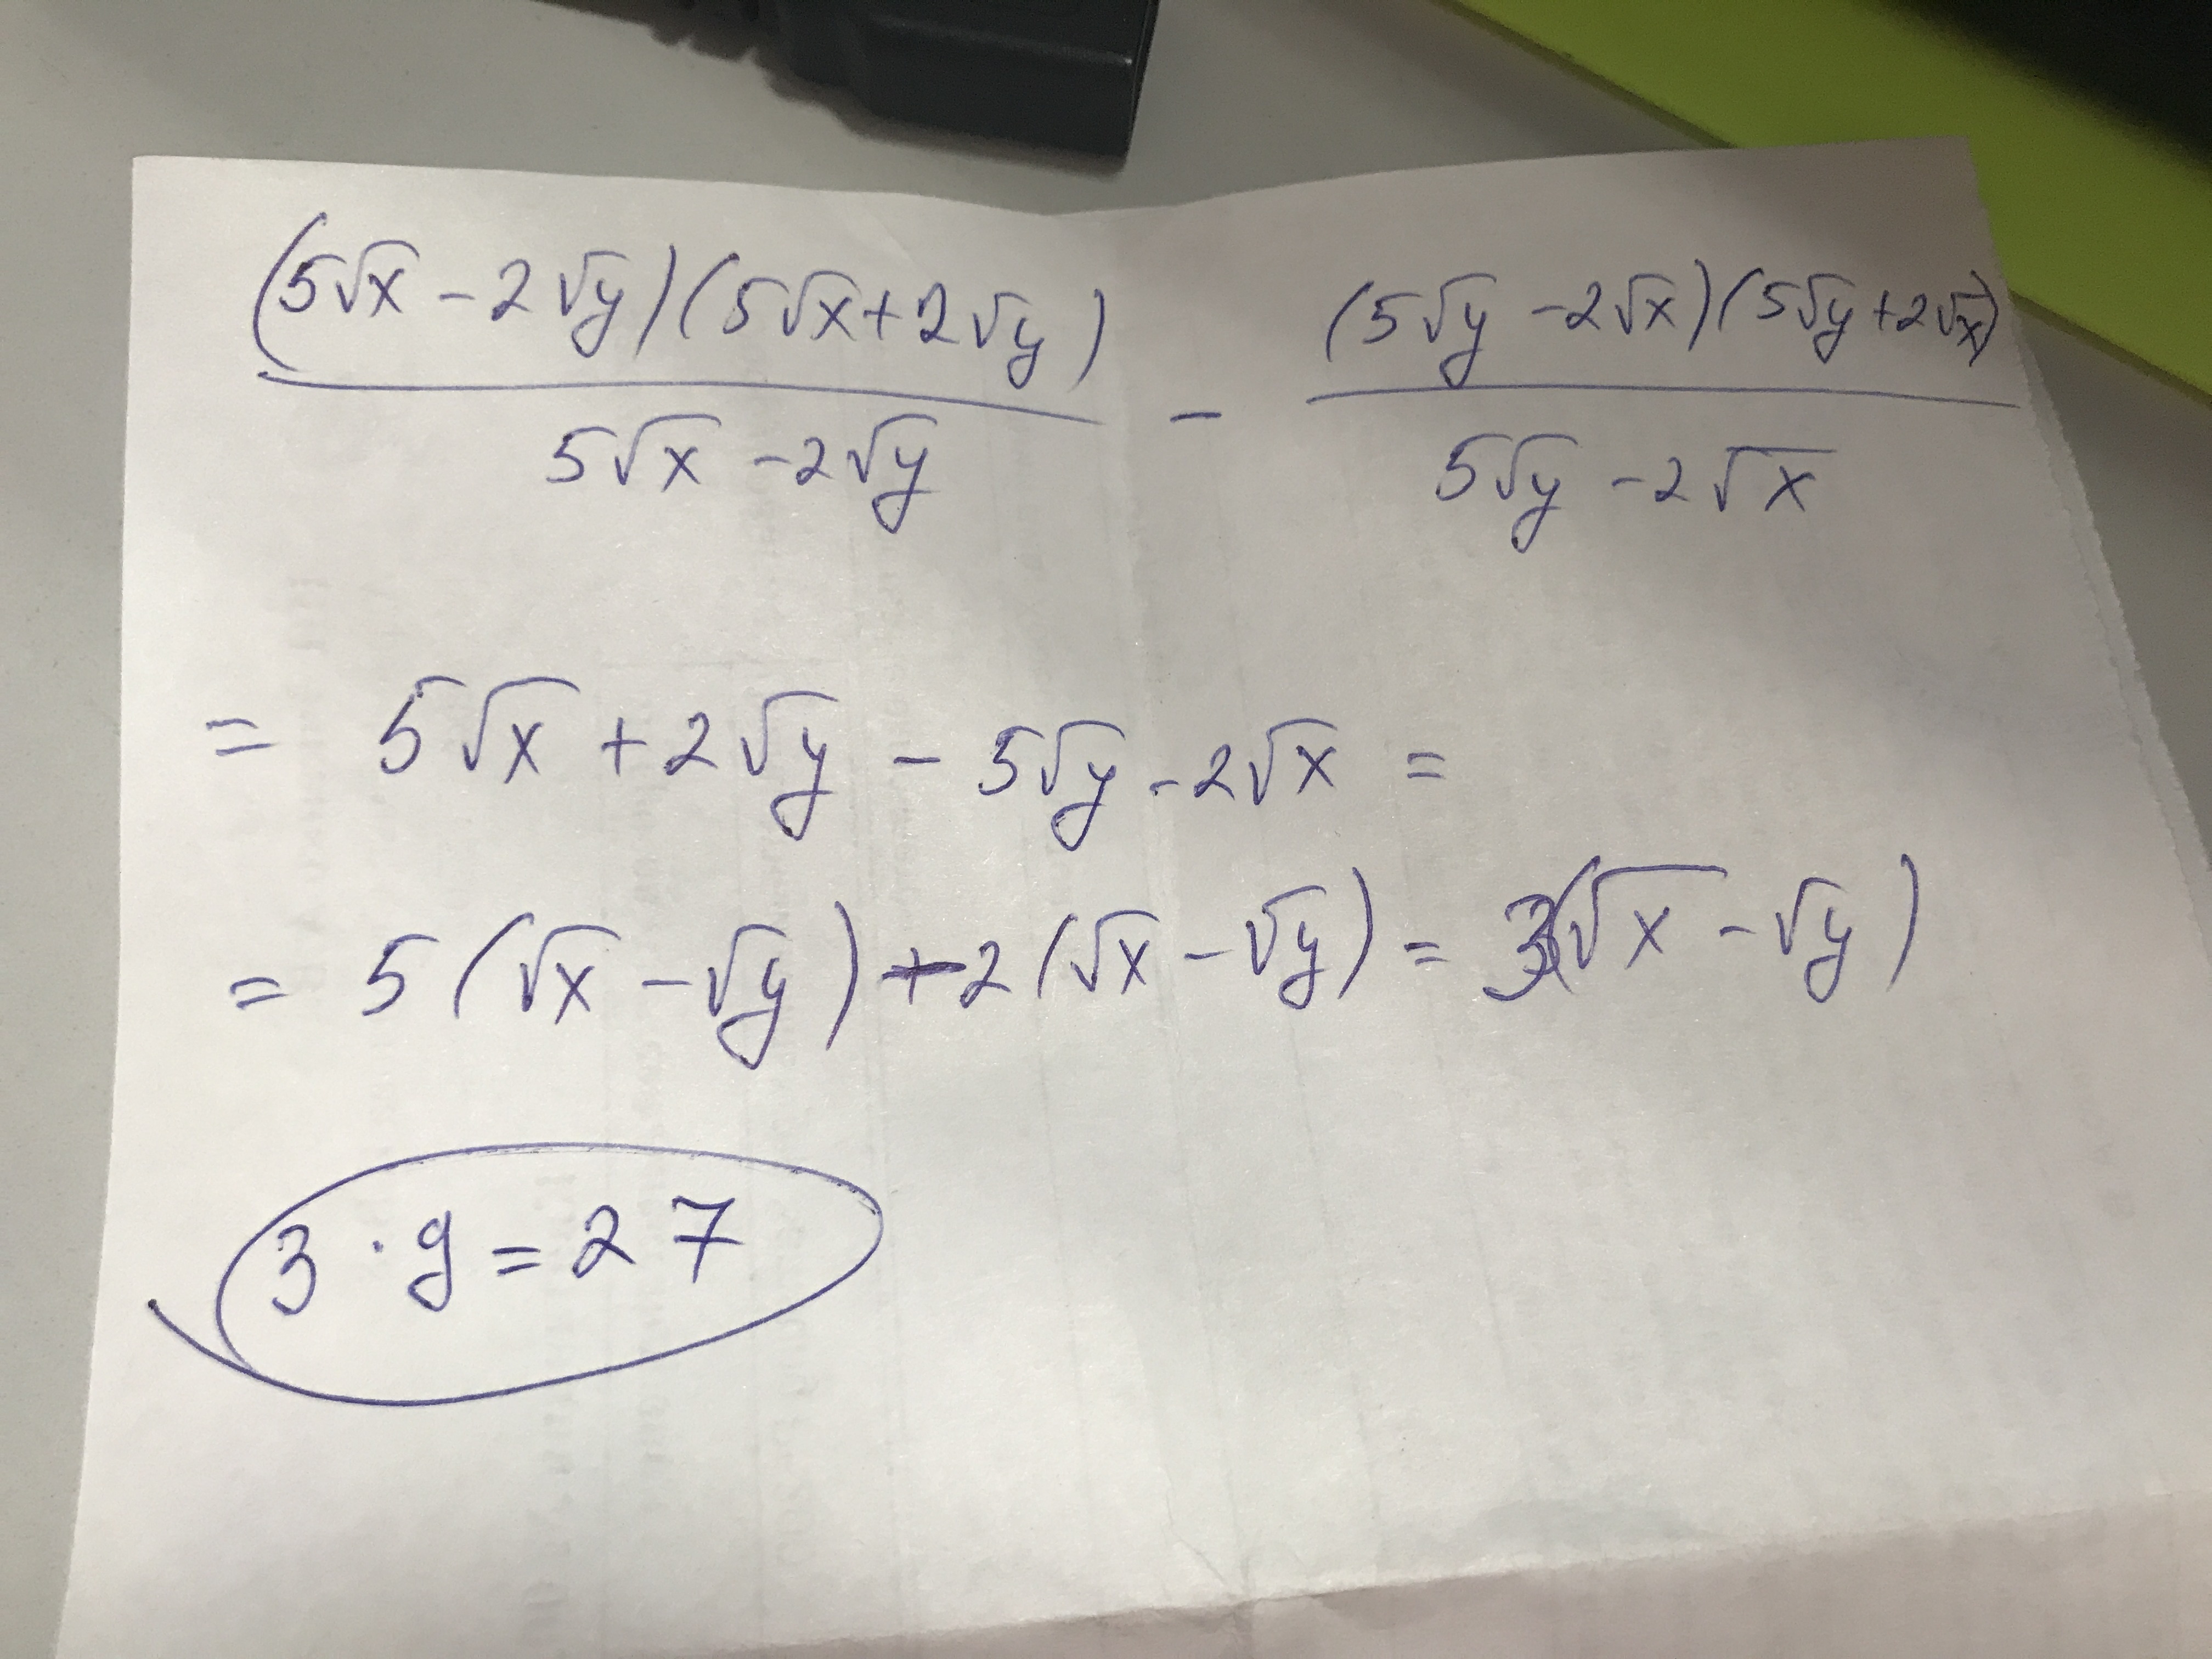 (5√x - 2√y)(5√x + 2√y) / 5√x - 2√y - (5√y - 2√x)(5√y + 2√x) / 5√y - 2√x
= 5√x + 2√y - 5√y - 2√x =
= 5(√x - √y) - 2(√x - √y) = 3(√x - √y)
3 · 9 = 27